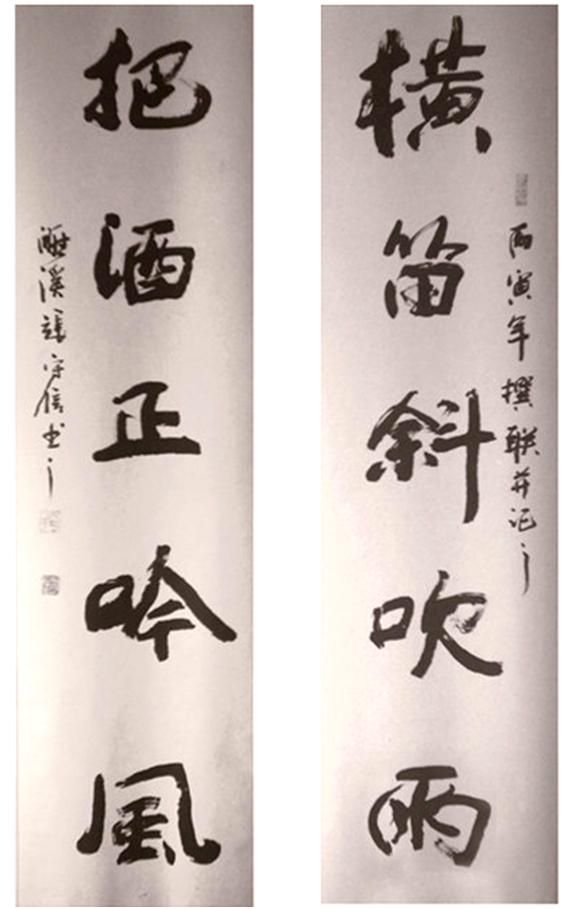 橫笛斜吹雨
丙寅年撰联并记之
把酒正吟風
濉溪張守信书之